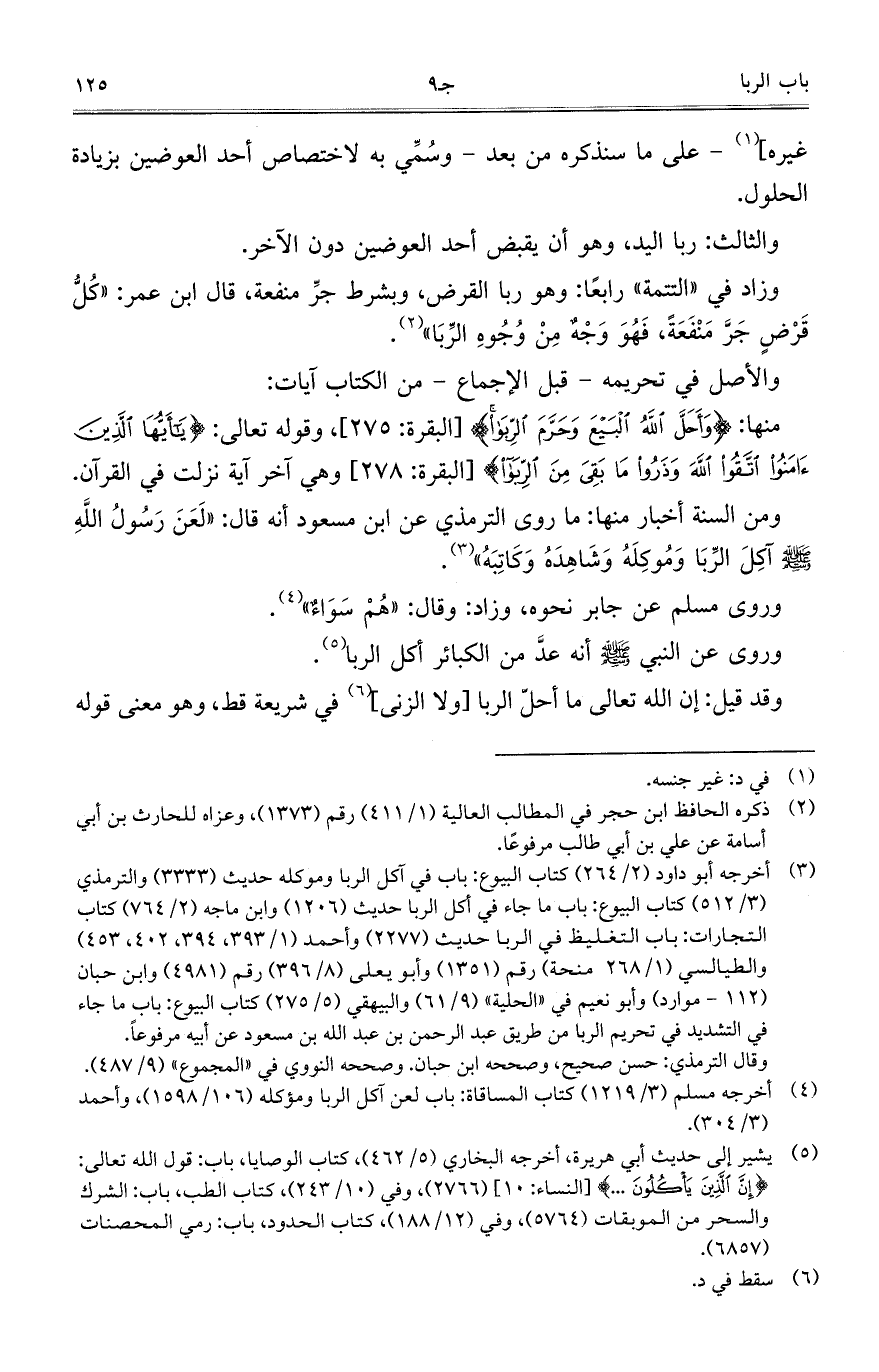 باب الربا جـ٩ ١٢٥
غيره](١) – على ما سنذكره من بعد – وسُمِّي به لاختصاص أحد العوضين بزيادة
الحلول.
والثالث: ربا اليد، وهو أن يقبض أحد العوضين دون الآخر.
وزاد في «التتمة» رابعًا: وهو ربا القرض، وبشرط جرِّ منفعة، قال ابن عمر: «كُلُّ
قَرْضٍ جَرَّ مَنْفَعَةً، فَهُوَ وَجْهٌ مِنْ وُجُوهِ الرِّبَا»(٢).
والأصل في تحريمه – قبل الإجماع – من الكتاب آيات:
منها: ﴿وَأَحَلَّ ٱللَّهُ ٱلْبَيْعَ وَحَرَّمَ ٱلرِّبَوٰا۟ۚ﴾ [البقرة: ٢٧٥]، وقوله تعالى: ﴿يَـٰٓأَيُّهَا ٱلَّذِينَ
ءَامَنُوا۟ ٱتَّقُوا۟ ٱللَّهَ وَذَرُوا۟ مَا بَقِىَ مِنَ ٱلرِّبَوٰٓا۟﴾ [البقرة: ٢٧٨] وهي آخر آية نزلت في القرآن.
ومن السنة أخبار منها: ما روى الترمذي عن ابن مسعود أنه قال: «لَعَنَ رَسُولُ اللَّهِ
ﷺ آكِلَ الرِّبَا وَمُوكِلَهُ وَشَاهِدَهُ وَكَاتِبَهُ»(٣).
وروى مسلم عن جابر نحوه، وزاد: وقال: «هُمْ سَوَاءٌ»(٤).
وروى عن النبي ﷺ أنه عدَّ من الكبائر أكل الربا(٥).
وقد قيل: إن الله تعالى ما أحلّ الربا [ولا الزنى](٦) في شريعة قط، وهو معنى قوله
(١) في د: غير جنسه.
(٢) ذكره الحافظ ابن حجر في المطالب العالية (١/ ٤١١) رقم (١٣٧٣)، وعزاه للحارث بن أبي
أسامة عن علي بن أبي طالب مرفوعًا.
(٣) أخرجه أبو داود (٢/ ٢٦٤) كتاب البيوع: باب في آكل الربا وموكله حديث (٣٣٣٣) والترمذي
(٣/ ٥١٢) كتاب البيوع: باب ما جاء في أكل الربا حديث (١٢٠٦) وابن ماجه (٢/ ٧٦٤) كتاب
التجارات: باب التغليظ في الربا حديث (٢٢٧٧) وأحمد (١/ ٣٩٣، ٣٩٤، ٤٠٢، ٤٥٣)
والطيالسي (١/ ٢٦٨ منحة) رقم (١٣٥١) وأبو يعلى (٨/ ٣٩٦) رقم (٤٩٨١) وابن حبان
(١١٢ – موارد) وأبو نعيم في «الحلية» (٩/ ٦١) والبيهقي (٥/ ٢٧٥) كتاب البيوع: باب ما جاء
في التشديد في تحريم الربا من طريق عبد الرحمن بن عبد الله بن مسعود عن أبيه مرفوعاً.
وقال الترمذي: حسن صحيح، وصححه ابن حبان. وصححه النووي في «المجموع» (٩/ ٤٨٧).
(٤) أخرجه مسلم (٣/ ١٢١٩) كتاب المساقاة: باب لعن آكل الربا ومؤكله (١٠٦/ ١٥٩٨)، وأحمد
(٣/ ٣٠٤).
(٥) يشير إلى حديث أبي هريرة، أخرجه البخاري (٥/ ٤٦٢)، كتاب الوصايا، باب: قول الله تعالى:
﴿إِنَّ ٱلَّذِينَ يَأْكُلُونَ ...﴾ [النساء: ١٠] (٢٧٦٦)، وفي (١٠/ ٢٤٣)، كتاب الطب، باب: الشرك
والسحر من الموبقات (٥٧٦٤)، وفي (١٢/ ١٨٨)، كتاب الحدود، باب: رمي المحصنات
(٦٨٥٧).
(٦) سقط في د.